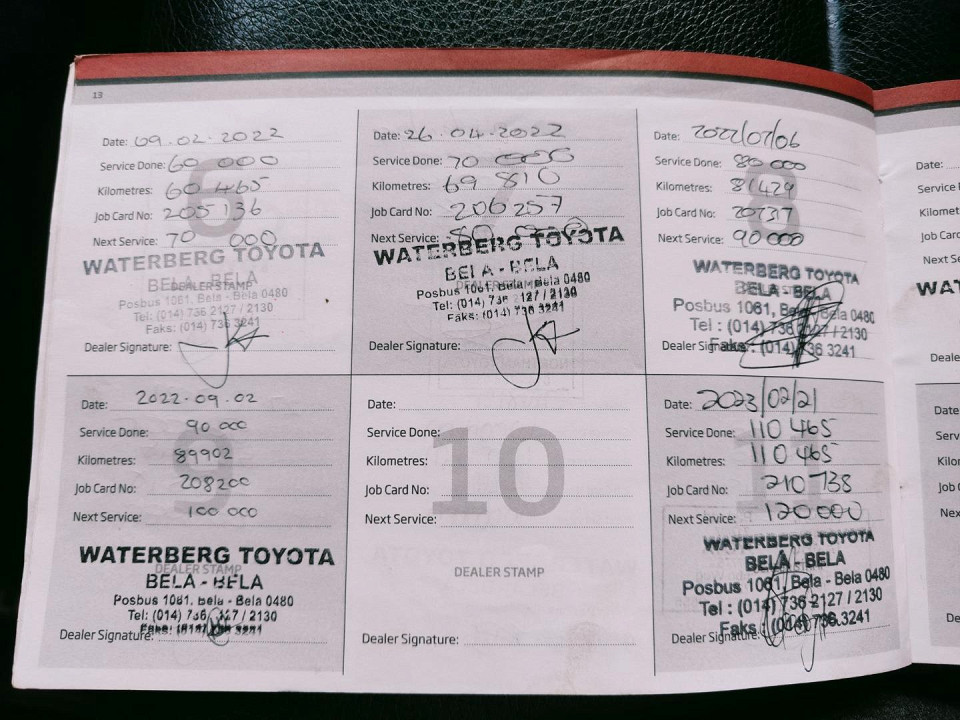 13
Date: 09.02.2022
Service Done: 60 000
Kilometres: 60 465
Job Card No: 205136
Next Service: 70 000
WATERBERG TOYOTA
BELA - BELA
DEALER STAMP
Posbus 1061, Bela - Bela 0480
Tel: (014) 736 2127 / 2130
Faks: (014) 736 3241
Dealer Signature:
Date: 26.04.2022
Service Done: 70 000
Kilometres: 69 810
Job Card No: 206257
Next Service: 80 000
WATERBERG TOYOTA
BELA - BELA
Posbus 1061, Bela - Bela 0480
Tel: (014) 736 2127 / 2130
Faks: (014) 736 3241
Dealer Signature:
8
Date: 2022/07/06
Service Done: 80 000
Kilometres: 81429
Job Card No:
Next Service: 90 000
WATERBERG TOYOTA
BELA - BELA
Posbus 1061, Bela - Bela 0480
Tel : (014) 736 2127 / 2130
Faks: (014) 736 3241
Dealer Signature:
9
Date: 2022.09.02
Service Done: 90 000
Kilometres: 89902
Job Card No: 208200
Next Service: 100 000
WATERBERG TOYOTA
DEALER STAMP
BELA - BELA
Posbus 1061, Bela - Bela 0480
Tel: (014) 736 2127 / 2130
Faks: (014) 736 3241
Dealer Signature:
10
Date:
Service Done:
Kilometres:
Job Card No:
Next Service:
DEALER STAMP
Dealer Signature:
Date: 2023/02/21
Service Done: 110 465
Kilometres: 110 465
Job Card No: 210 738
Next Service: 120 000
WATERBERG TOYOTA
BELA - BELA
Posbus 1061, Bela - Bela 0480
Tel : (014) 736 2127 / 2130
Faks : (014) 736 3241
Dealer Signature:
Date:
Service
Job Car
Next Se
WAT
Deale
Date
Serv
Kilo
Job
Nex